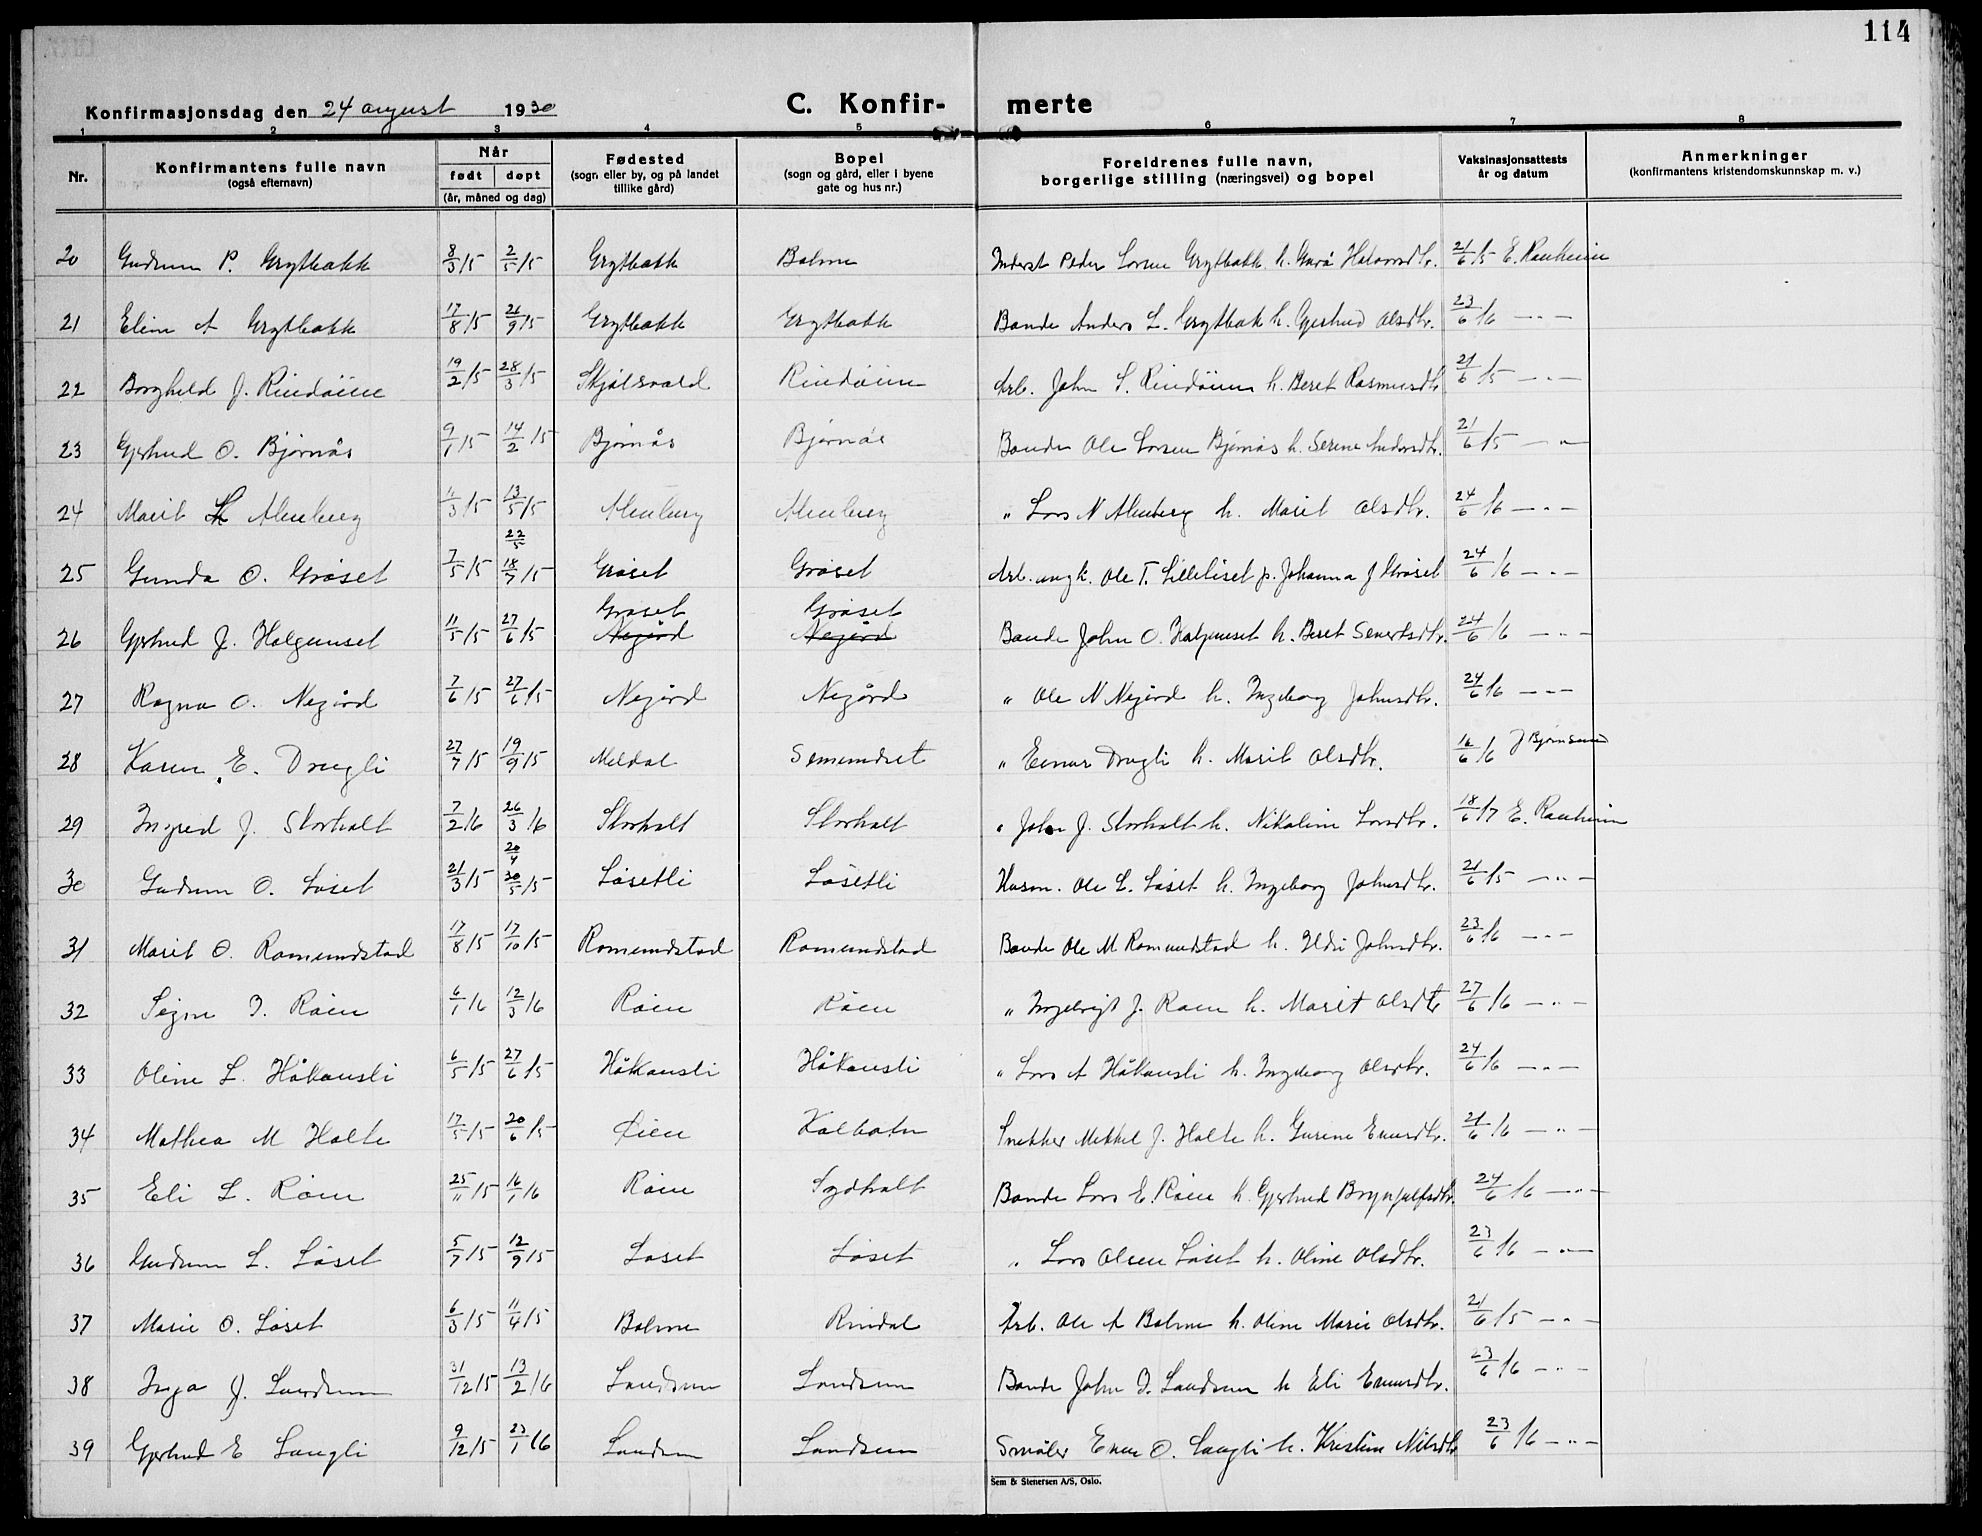 114
Konfirmasjonsdag den 24 august 1930
C. Konfir- merte
1 2 3 4 5 6 7 8
Nr. Konfirmantens fulle navn (også efternavn) Når født døpt (år, måned og dag) Fødested (sogn eller by, og på landet tillike gård) Bopel (sogn og gård, eller i byene gate og hus nr.) Foreldrenes fulle navn, borgerlige stilling (næringsvei) og bopel Vaksinasjonsattests år og datum Anmerkninger (konfirmantens kristendomskunnskap m. v.)
20 Gudrun P. Grytbakk 8/3 15 2/5 15 Grytbakk Bolme Inderst Peder Larsen Grytbakk h. Halvorsdtr. 21/6 15 E. Ranheim
21 Eline A Grytbakk 17/8 15 26/9 15 Grytbakk Grytbakk Bonde Anders L. Grytbak h. Gjertrud Olsdtr. 23/6 16 —"—
22 Borghild J. Rindöien 19/2 15 28/3 15 Skjölsvold Rindöien Arb. John S. Rindöien h. Beret Rasmusdtr 21/6 15 —"—
23 Gjertrud O. Bjørnås 9/1 15 14/2 15 Bjørnås Bjørnås Bonde Ole Larsen Bjørnås h. Serine Andersdtr. 21/6 15 —"—
24 Marit L Almberg 11/3 15 13/5 15 Almberg Almberg " Lars N Almberg h. Marit Olsdtr. 24/6 16 —"—
22/5
25 Gunda O. Gråset 7/5 15 18/7 15 Gråset Gråset Arb. ungk. Ole T. Lilleliset p. Johanna J Gråset 24/6 16 —"—
Gråset Gråset
26 Gjertrud J. Halgunset 11/5 15 27/6 15 Negård Negård Bonde John O. Halgunset h. Beret Sivertsdtr. 24/6 16 —"—
27 Ragna O. Negård 7/6 15 27/6 15 Negård Negård " Ole N Negård h. Ingeborg Johnsdtr. 24/6 16 —"—
28 Karen E. Drugli 27/7 15 19/9 15 Meldal " Einar Drugli h. Marit Olsdtr. 16/6 16 J Bjørnsund
29 Ingrid J. Storholt 7/2 16 26/3 16 Storholt Storholt " John J. Storholt h. Nikoline Larsdtr. 18/6 17 E. Ranheim
20/4
30 Gudrun O. Löset 21/3 15 30/5 15 Lösetli Lösetli Husm. Ole L. Löset h. Ingeborg Johnsdtr. 21/6 15 —"—
31 Marit O. Romundstad 17/8 15 17/10 15 Romundstad Romundstad Bonde Ole M Romundstad h. Ildri Johnsdtr. 23/6 16 —"—
32 Signe I. Röen 6/1 16 12/3 16 Röen Röen " Ingebrigt J. Röen h. Marit Olsdtr 27/6 16 —"—
33 Oline L. Håkansli 6/5 15 27/6 15 Håkansli Håkansli " Lars A Håkansli h. Ingeborg Olsdtr. 24/6 16 —"—
34 Mathea M Holte 17/5 15 20/6 15 Øien Kalbotn Snekker Mikkel J. Holte h. Gurine Einarsdtr. 21/6 16 —"—
35 Eli L. Röen 25/11 15 16/1 16 Röen Sydholt Bonde Lars E. Röen h. Gjertrud Brynjulfsdtr. 24/6 16 —"—
36 Gudrun L. Löset 5/7 15 12/9 15 Löset Löset " Lars Olsen Löset h. Oline Olsdtr. 23/6 16 —"—
37 Marie O. Löset 6/3 15 11/4 15 Bolme Rindal Arb. Ole A Bolme h. Oline Marie Olsdtr. 21/6 15 —"—
38 Inga J. Landsem 31/12 15 13/2 16 Landsem Landsem Bonde John I. Landsem h Eli Einarsdtr. 23/6 16 —"—
39 Gjertrud E Langli 9/12 15 23/1 16 Landsem Landsem Småler Einar O. Langli h. Kristine Nilsdtr 23/6 16 —"—
Sem & Stenersen A/S, Oslo.